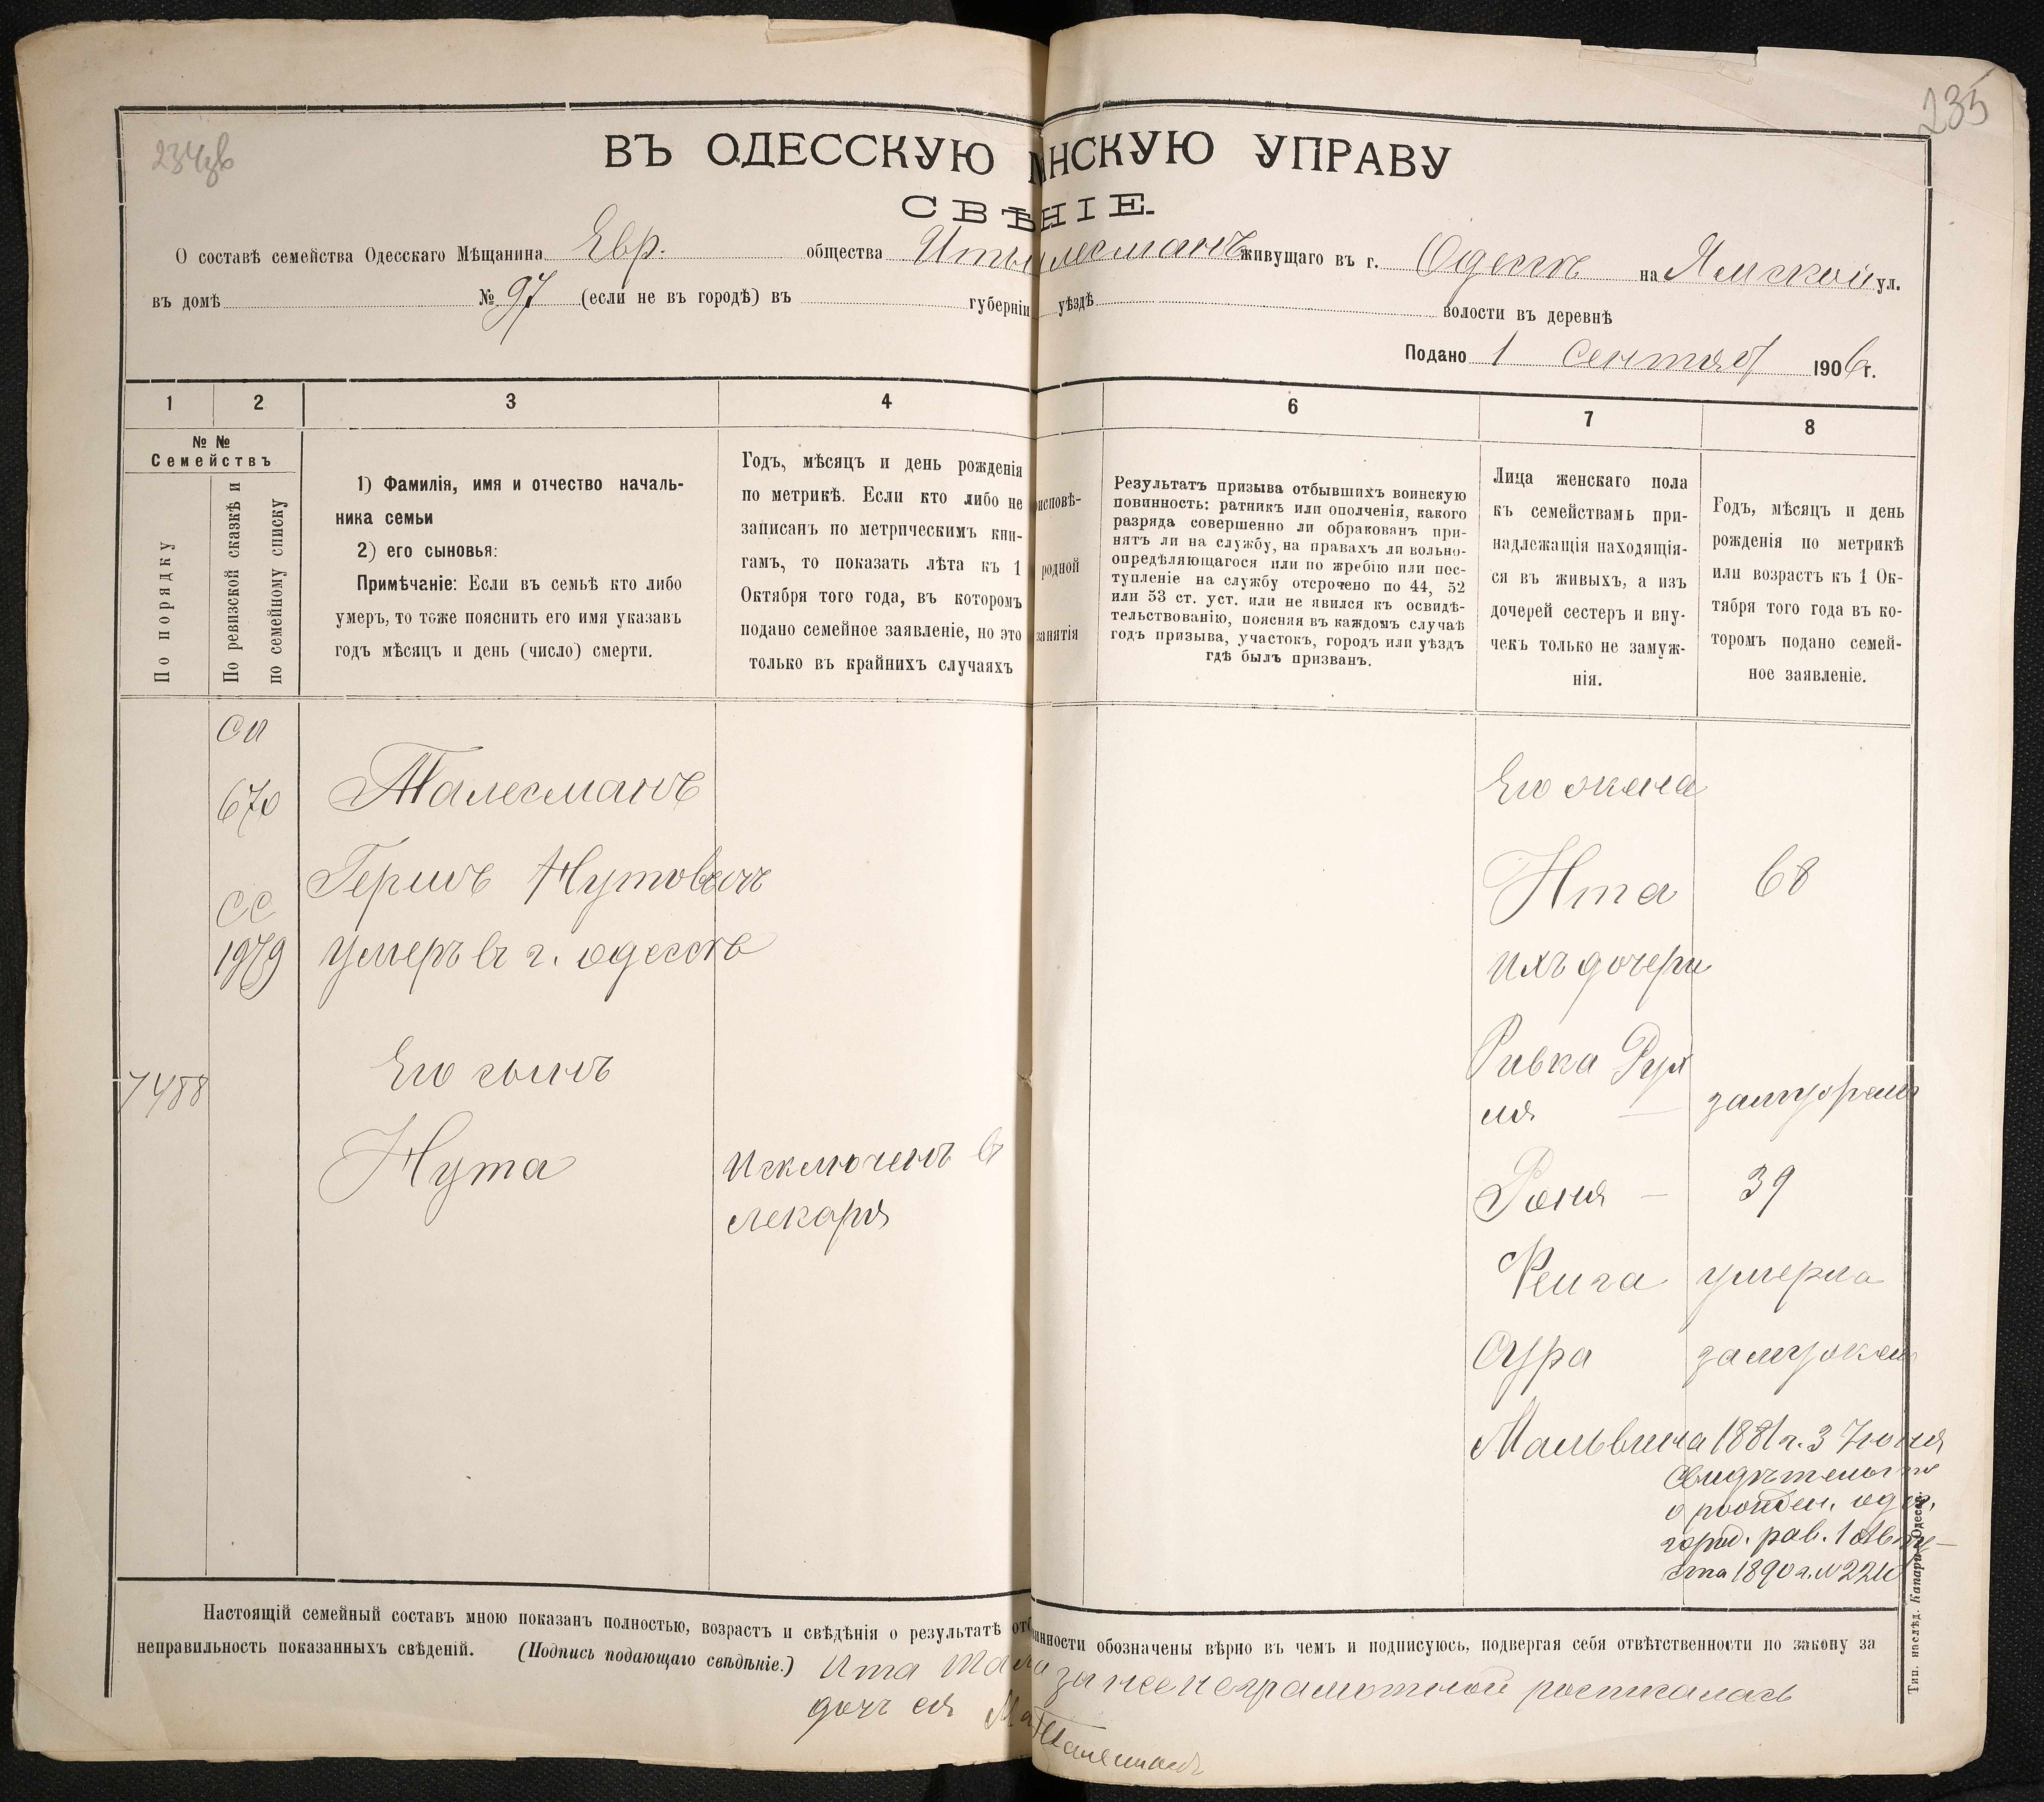 235
234об
ВЪ ОДЕССКУЮ НСКУЮ УПРАВУ
СВѢНІЕ.
О составѣ семейства Одесскаго Мѣщанина Евр. общества Иты лесманъ живущаго въ г. Одессѣ на Ямской ул.
въ домѣ № 97 (если не въ городѣ) въ губерніи уѣздѣ волости въ деревнѣ
Подано 1 сентяб 1906 г.
1 2 3 4 6 7 8
№ №
Семействъ
По порядку
По ревизской сказкѣ и
по семейному списку
1) Фамилія, имя и отчество началь-
ника семьи
2) его сыновья:
Примѣчаніе: Если въ семьѣ кто либо
умеръ, то тоже пояснить его имя указавъ
годъ мѣсяцъ и день (число) смерти.
Годъ, мѣсяцъ и день рожденія
по метрикѣ. Если кто либо не
записанъ по метрическимъ кни-
гамъ, то показать лѣта къ 1
Октября того года, въ которомъ
подано семейное заявленіе, но это
только въ крайнихъ случаяхъ
исповѣ-
родной
занятія
Результатъ призыва отбывшихъ воинскую
повинность: ратникъ или ополченія, какого
разряда совершенно ли обракованъ при-
нятъ ли на службу, на правахъ ли вольно-
опредѣляющагося или по жребію или пос-
тупленіе на службу отсрочено по 44, 52
или 53 ст. уст. или не явился къ освидѣ-
тельствованію, поясняя въ каждомъ случаѣ
годъ призыва, участокъ, городъ или уѣздъ
гдѣ былъ призванъ.
Лица женскаго пола
къ семействамъ при-
надлежащія находящія-
ся въ живыхъ, а изъ
дочерей сестеръ и вну-
чекъ только не замуж-
нія.
Годъ, мѣсяцъ и день
рожденія по метрикѣ
или возрастъ къ 1 Ок-
тября того года въ ко-
торомъ подано семей-
ное заявленіе.
670
СС
1979
7488
Талесманъ
Гершъ Нутовичъ
умеръ въ г. одессѣ
Его сынъ
Нута
Исключенъ въ
лекаря
Его жена
Ита 68
ихъ дочери
Ривка Рух
ля — замужем
Роня — 39
Фейга умерла
Сура замужем
Мальвина 1881 г. 3 Іюня
свидѣтельство
о рожден. одес.
город. рав. 1 Авгу-
ста 1890 г. №
Настоящій семейный составъ мною показанъ полностью, возрастъ и свѣдѣнія о результатѣ отб инности обозначены вѣрно въ чемъ и подписуюсь, подвергая себя отвѣтственности по закону за
неправильность показанныхъ свѣденій. (Подпись подающаго свѣдѣніе.) Ита Тал за нее неграмотной росписалась
дочь ея Ма Талесманъ
Тип. наслѣд. Капари Одесса.